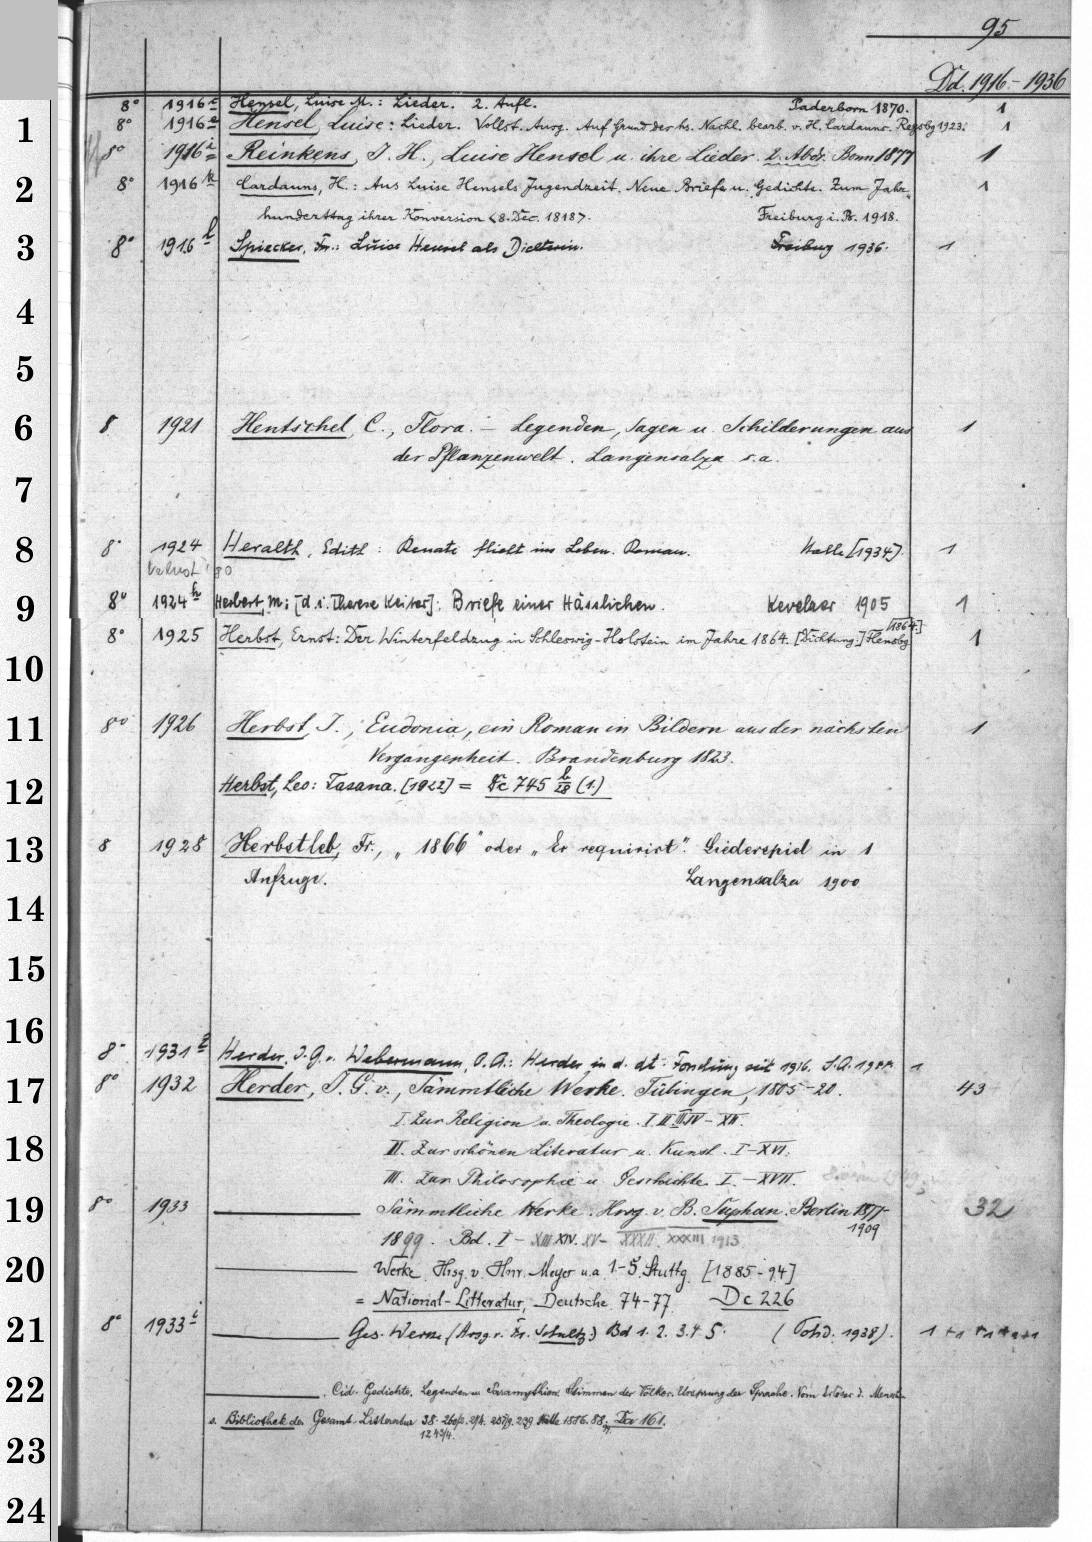 95
Dd. 1916 - 1936
8° 1916 Hensel, Luise M.: Lieder. 2. Aufl. Paderborn 1870. 1
1 8° 1916 Hensel, Luise: Lieder. Vollst. Ausg. Auf Grund des hs. Nachl. bearb. v. H. Cardauns. Regsbg 1923. 1
8° 1916 i Reinkens, J. H., Luise Hensel u. ihre Lieder. 2. Abdr. Bonn 1877 1
2 8° 1916 k Cardauns, H.: Aus Luise Hensels Jugendzeit. Neue Briefe u. Gedichte. Zum Jahr
hunderttag ihrer Konversion <8. Dec. 1818>. Freiburg i. Br. 1918. 1
3 8° 1916 l Spiecker, Fr.: Luise Hensel als Dichterin. Freiburg 1936. 1
4
5
6 8 1921 Hentschel, C., Flora. - Legenden, Sagen u. Schilderungen aus 1
der Pflanzenwelt. Langensalza s. a.
7
8 8° 1924 Heralth, Edith: Renate flieht ins Leben. Roman. Halle [1934]. 1
9 8° 1924 h Herbert, M.: [d. i. Therese Keiter]: Briefe einer Hässlichen. Kevelaer 1905 1
8° 1925 Herbst, Ernst: Der Winterfeldzug in Schleswig-Holstein im Jahre 1864. [Dichtung.] Flensbg [1864.] 1
10
11 8° 1926 Herbst, J., Eudonia, ein Roman in Bildern aus der nächsten 1
Vergangenheit. Brandenburg 1823.
12 Herbst, Leo: Tasana. [1922] = 745 h/28 (1.)
13 8 1928 Herbstleb, Fr., „1866" oder „Er requirirt". Liederspiel in 1
Anfzuge. Langensalza 1900
14
15
16
8° 1931 Herder, J. G. v. Webermann, O. A.: Herder in d. dt. Forschung seit 1916. S. A. 1
17 8° 1932 Herder, J. G. v., Sämmtliche Werke. Tübingen, 1805-20. 43
I. Zur Religion u. Theologie. I. II. III. IV - XII.
18 II. Zur schönen Literatur u. Kunst. I - XVI.
III. Zur Philosophie u. Geschichte. I. - XVII.
19 8° 1933 Sämmtliche Werke. Hrsg. v. B. Suphan. Berlin 1877- 32
1909
1899. Bd. I - XIII XIV. XV - XXXII. XXXIII 1913
20 Werke. Hrsg. v. Meyer u. a. 1-5. Stuttg. [1885-94]
= National-Litteratur, Deutsche. 74-77 Dc 226
21 8° 1933 i Ges. Werke (Hrsg. v. Fr. Schultz) Bd 1. 2. 3. 4 5. (Potsd. 1938). 1 + 1 + 1 + 1 + 1
22 Cid. Gedichte. Legenden u. Paramythien. Stimmen der Völker. Ursprung der Sprache. Vom Erlöser d. Mensch
s. Bibliothek der Gesamt-Litteratur 38. 161.
1243/4.
23
24